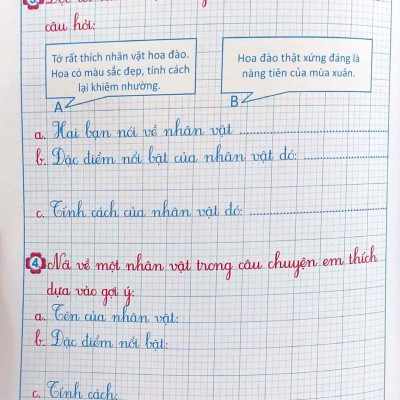 câu hỏi:
Tớ rất thích nhân vật hoa đào.
Hoa có màu sắc đẹp, tính cách
lại khiêm nhường.
A
Hoa đào thật xứng đáng là
nàng tiên của mùa xuân.
B
a. Hai bạn nói về nhân vật ..............................
b. Đặc điểm nổi bật của nhân vật đó: ..............
c. Tính cách của nhân vật đó: ..........................
4. Nói về một nhân vật trong câu chuyện em thích
dựa vào gợi ý:
a. Tên của nhân vật:
b. Đặc điểm nổi bật:
c. Tính cách: